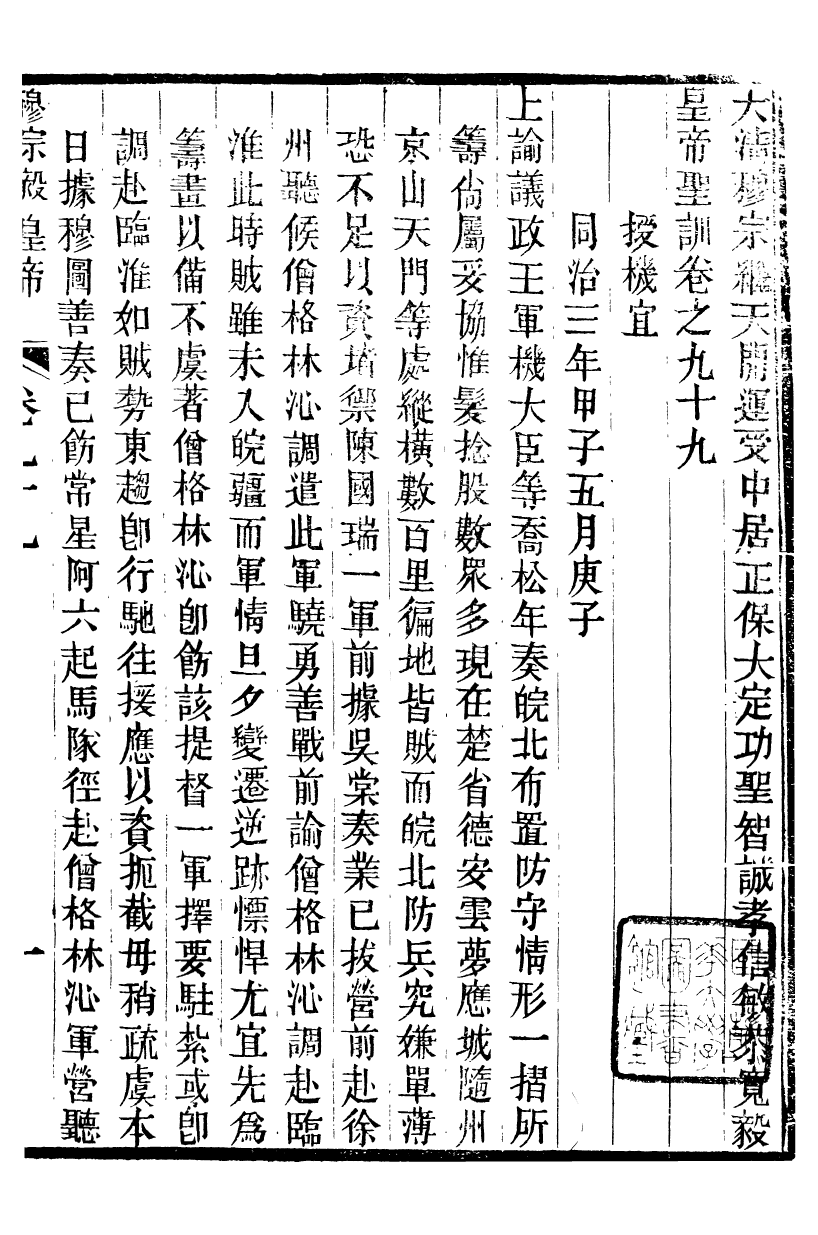 大清穆宗繼天開運受中居正保大定功聖智誠孝信敏恭寬毅
皇帝聖訓卷之九十九
授機宜
同治三年甲子五月庚子
上諭議政王軍機大臣等喬松年奏皖北布置防守情形一摺所
籌尙屬妥協惟髮捻股數眾多現在楚省德安雲夢應城隨州
京山天門等處縱橫數百里徧地皆賊而皖北防兵究嫌單薄
恐不足以資堵禦陳國瑞一軍前據吳棠奏業已拔營前赴徐
州聽候僧格林沁調遣此軍驍勇善戰前諭僧格林沁調赴臨
淮此時賊雖未入皖疆而軍情旦夕變遷逆跡慓悍尤宜先爲
籌畫以備不虞著僧格林沁卽飭該提督一軍擇要駐紮或卽
調赴臨淮如賊勢東趨卽行馳往援應以資扼截毋稍疏虞本
日據穆圖善奏已飭常星阿六起馬隊徑赴僧格林沁軍營聽
穆宗毅皇帝 卷九十九 一